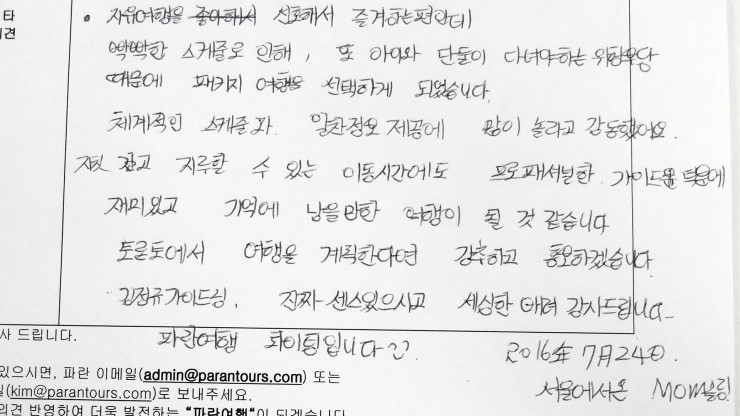 타
의견
• 자유여행을 좋아해서 선호해서 즐겨하는편인데
빡빡한 스케줄로 인해, 또 아이와 단둘이 다녀야하는 위험부담
때문에 패키지 여행을 선택하게 되었습니다.
체계적인 스케줄과 알찬정보 제공에 많이 놀라고 감동했어요.
자칫 길고 지루할 수 있는 이동시간에도 프로패셔널한 가이드분 덕분에
재미있고 기억에 남을만한 여행이 될 것 같습니다
토론토에서 여행을 계획한다면 강추하고 홍보하겠습니다.
김정규가이드님, 진짜 센스있으시고 세심한 배려 감사드립니다
파란여행 화이팅입니다
2016年 7月 24日.
서울에서온 Mom블링
사 드립니다.
있으시면, 파란 이메일(admin@parantours.com) 또는
일(kim@parantours.com)로 보내주세요.
의견 반영하여 더욱 발전하는 "파란여행"이 되겠습니다